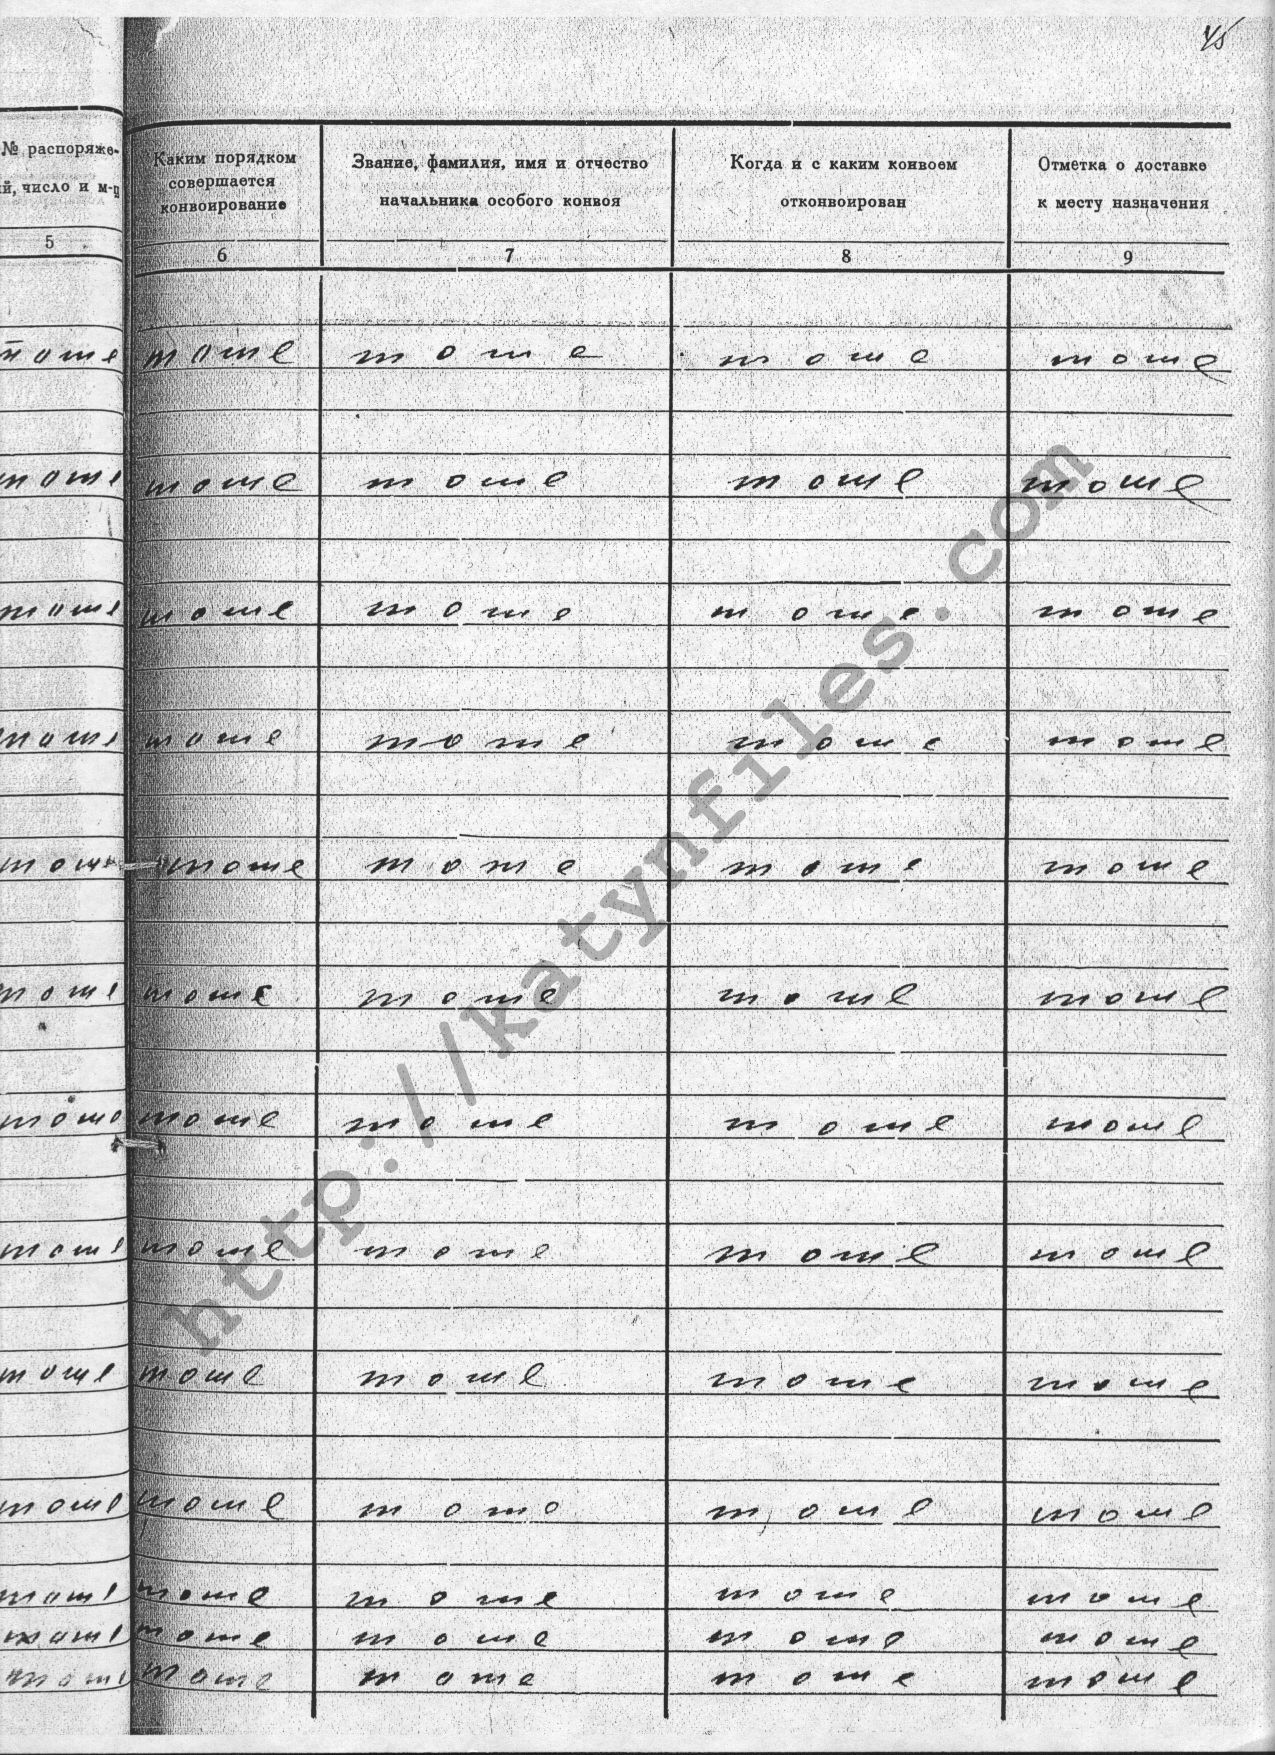 45
№ распоряже-
ий, число и м-ц
5
Каким порядком
совершается
конвоирование
6
Звание, фамилия, имя и отчество
начальника особого конвоя
7
Когда и с каким конвоем
отконвоирован
8
Отметка о доставке
к месту назначения
9
тоже тоже тоже тоже тоже
тоже тоже тоже тоже тоже
тоже тоже тоже тоже тоже
тоже тоже тоже тоже тоже
тоже тоже тоже тоже тоже
тоже тоже тоже тоже тоже
тоже тоже тоже тоже тоже
тоже тоже тоже тоже тоже
тоже тоже тоже тоже тоже
тоже тоже тоже тоже тоже
тоже тоже тоже тоже тоже
тоже тоже тоже тоже тоже
тоже тоже тоже тоже тоже
http://katynfiles.com